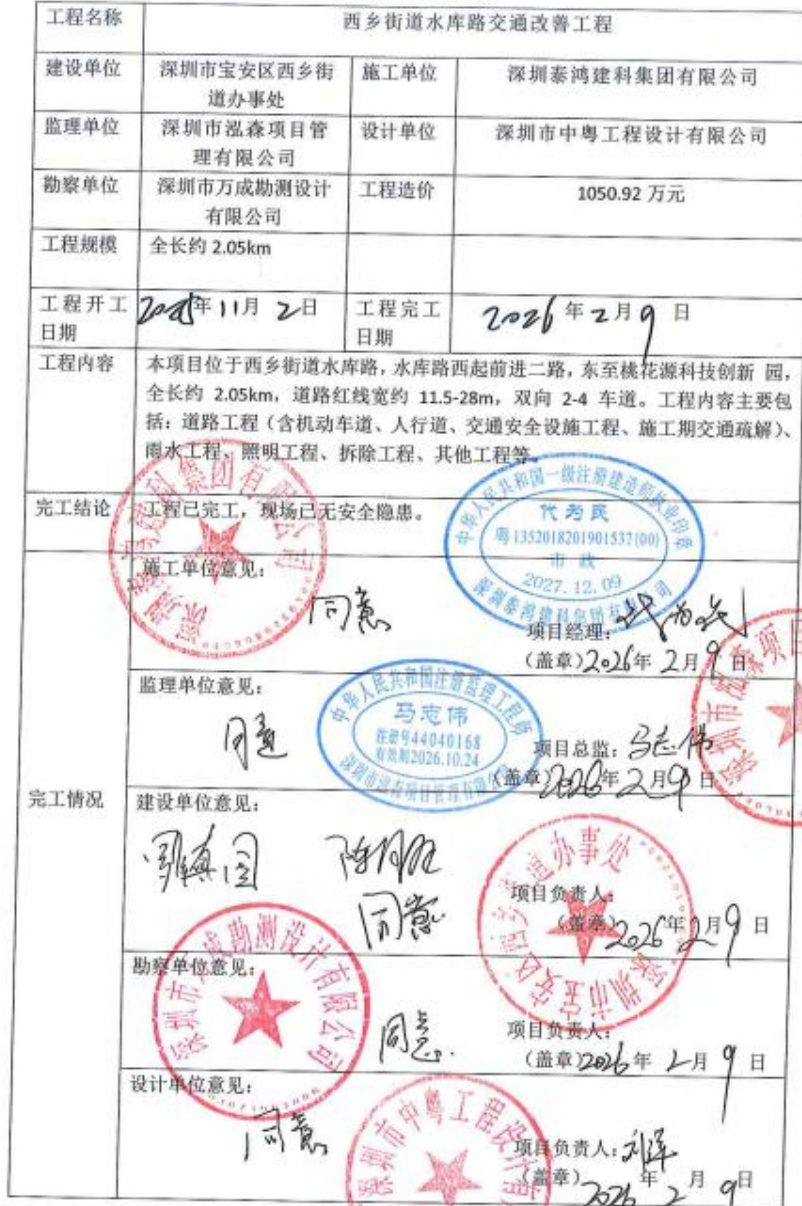 工程名称 西乡街道水库路交通改善工程
建设单位 深圳市宝安区西乡街道办事处 施工单位 深圳泰鸿建科集团有限公司
监理单位 深圳市泓森项目管理有限公司 设计单位 深圳市中粤工程设计有限公司
勘察单位 深圳市万成勘测设计有限公司 工程造价 1050.92 万元
工程规模 全长约 2.05km
工程开工日期 2025年11月2日 工程完工日期 2026年2月9日
工程内容 本项目位于西乡街道水库路，水库路西起前进二路，东至桃花源科技创新 园，
全长约 2.05km，道路红线宽约 11.5-28m，双向 2-4 车道。工程内容主要包
括：道路工程（含机动车道、人行道、交通安全设施工程、施工期交通疏解）、
雨水工程、照明工程、拆除工程、其他工程等。
完工结论 工程已完工，现场已无安全隐患。
中华人民共和国一级注册建造师执业印章
代为民
粤1352018201901537(00)
市政
2027.12.09
深圳泰鸿建科集团有限公司
完工情况
施工单位意见：
同意
项目经理：代为民
（盖章）2026年2月9日
监理单位意见：
同意
中华人民共和国注册监理工程师
马志伟
注册号44040168
有效期2026.10.24
深圳市泓森项目管理有限公司
项目总监：马志伟
（盖章）2026年2月9日
建设单位意见：
同意
项目负责人：
（盖章）2026年2月9日
勘察单位意见：
深圳市万成勘测设计有限公司
同意.
项目负责人：
（盖章）2026年2月9日
设计单位意见：
同意
深圳市中粤工程设计有
项目负责人：刘洋
（盖章）2026年2月9日